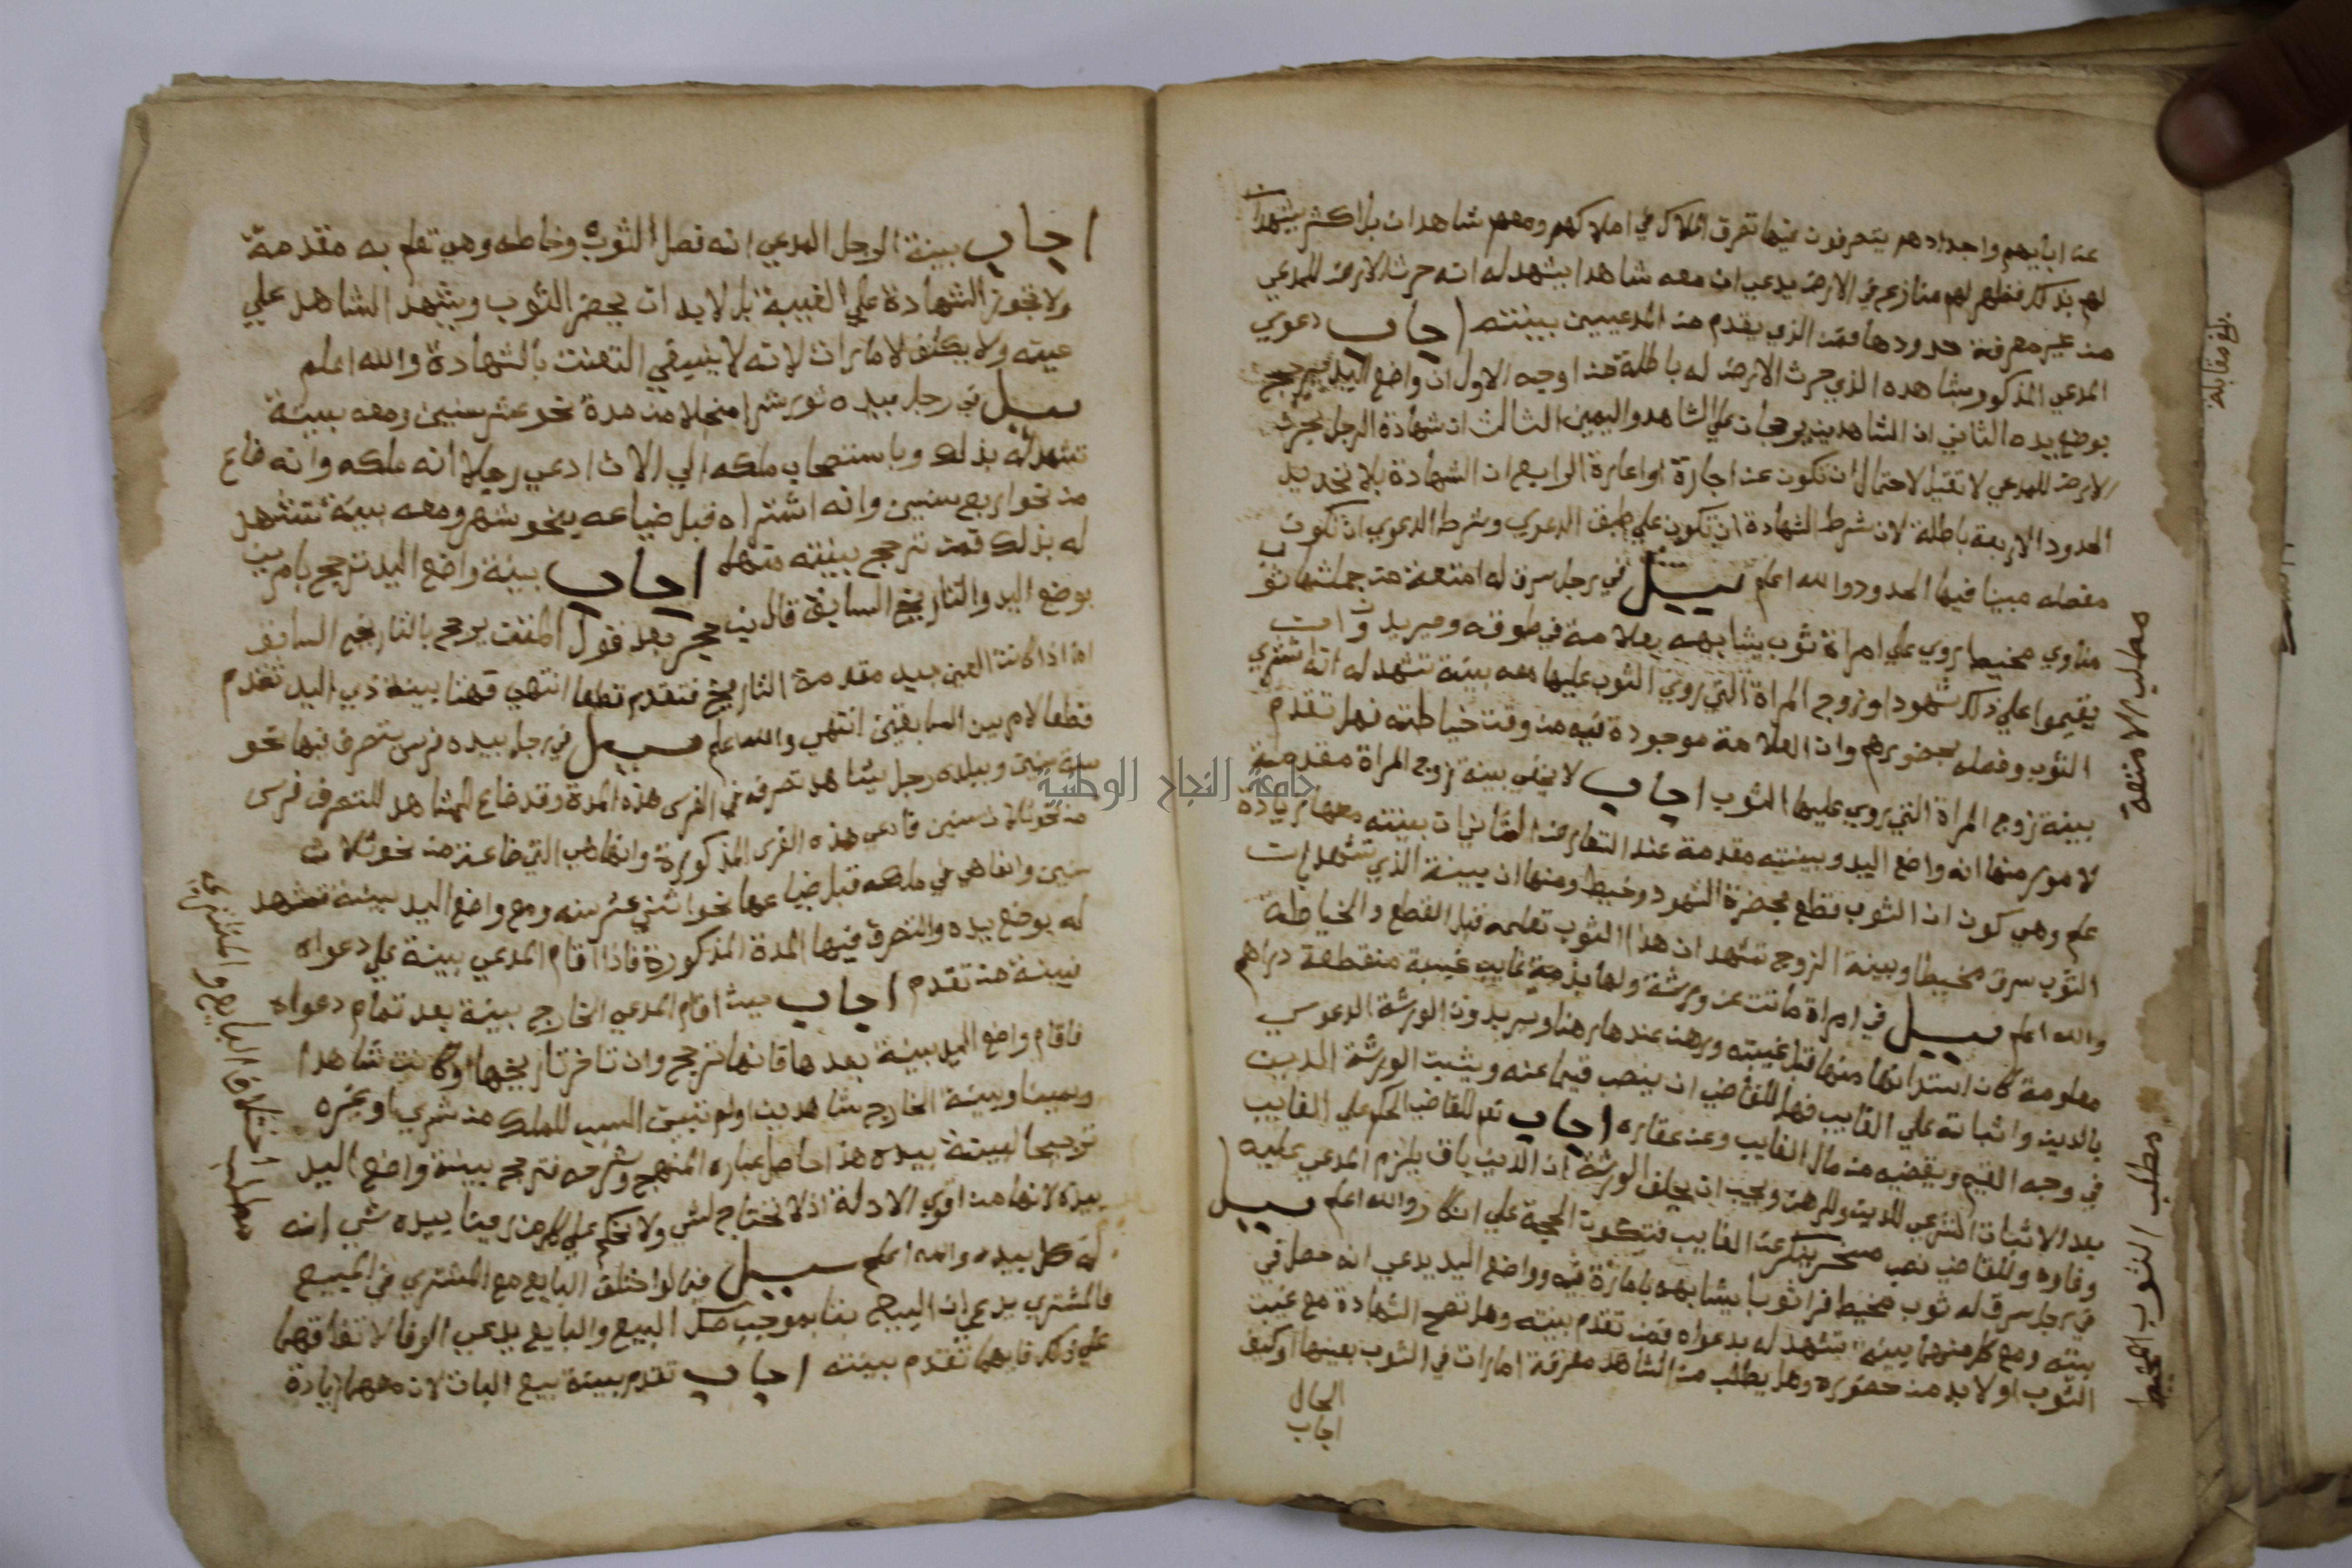 عن ابايهم واجدادهم يتصرفون فيها تصرف الملاك في املاكهم ومعهم شاهدان بل اكثر يشهدان
لهم بذلك فظهر لهم منازع في الارض يدعي ان معه شاهدا يشهد له انه حرث الارض للمدعي
من غير معرفة حدودها فمن الذي يقدم من المدعيين ببينته اجاب دعوي
المدعي المذكور بشاهده الذي حرث الارض له باطلة من اوجه الاول ان واضع اليد يترجح
بوضع يده الثاني ان الشاهدين يرجحان علي الشاهد واليمين الثالث ان شهادة الرجل بحرث
الارض للمدعي لا تقبل لاحتمال ان تكون عن اجارة او اعارة الرابع ان الشهادة بلا تحديد
الحدود الاربعة باطلة لان شرط الشهادة ان تكون علي طبق الدعوي وشرط الدعوي ان تكون
مفصله مبينا فيها الحدود والله اعلم سيل في رجل سرق له امتعة من جملتها ثوب
مناوي مخيط روي علي امراة ثوب يشابهه بعلامة في طوقه ومريدون ان
يقيموا علي ذلك شهودا وزوج المراة التي روي الثوب عليها معه بينة تشهد له انه اشتري
الثوب وفصله بحضورهم وان العلامة موجودة فيه من وقت خياطته فهل تقدم
بينة زوج المراة التي روي عليها الثوب اجاب لا يخفي بينة زوج المراة مقدمة
لامور منها انه واضع اليد وبينته مقدمة عند التعارض الثاني ان بينته معها زيادة
علم وهي كون ان الثوب قطع بحضرة الشهود وخيط ومنها ان بينة الذي تشهد ان
الثوب سرق مخيطا وبينة الزوج تشهد ان هذا الثوب تعلمه قبل القطع والخياطة
والله اعلم سيل في امراة ماتت عن ورثة ولها بذمة غايب غيبة منقطعة دراهم
معلومة كان استدانها منها قبل غيبته ورهن عندها رهنا ويريدون الورثة الدعوي
بالدين واثباته علي الغايب فهل للقاضي ان ينصب قيما عنه ويثبت الورثة الدين
في وجه القيم ويقضيه من مال الغايب وعن عقاره اجاب نعم للقاضي الحكم علي الغايب
بعد الاثبات الشرعي للدين وللرهن ويجب ان يحلف الورثة ان الدين باق يلزم المدعي عليه
وفاوه وللقاضي نصب مسخر ينكر عن الغايب فتكون الحجة علي انكار والله اعلم سيل
في رجل سرق له ثوب مخيط فراي ثوبا يشابهه بامارة فيه وواضع اليد يدعي انه فصل في
بيته ومع كل منهما بينة تشهد له بدعواه فمن تقدم بينته وهل تصح الشهادة مع غيبت
الثوب او لا بد من حضوره وهل يطلب من الشاهد معرفة امارات في الثوب بعينها او كيف
الحال
اجاب
مطلب الامتعة
مطلب الثوب المخيط
بلغ مقابلة
اجاب بينة الرجل المدعي انه فصل الثوب وخاطه وهي تعلم به مقدمة
ولا تجوز الشهادة علي الغيبة بل لا بد ان يحضر الثوب ويشهد الشاهد علي
عينه ولا يكلف الامارات لانه لا ينبغي التعنت بالشهادة والله اعلم
سيل في رجل بيده ثور من مدة نحو عشر سنين ومعه بينة
تشهد له بذلك وباستصحاب ملكه الي الان ادعي رجلا انه ملكه وانه ضاع
من نحو اربع سنين وانه اشتراه قبل ضياعه بنحو شهر ومعه بينة تشهد
له بذلك فمن ترجح بينته منهما اجاب بينة واضع اليد ترجح بامرين
بوضع اليد والتاريخ السابق قال بن حجر بعد قول المتن يرجح بالتاريخ السابق
اما اذا كانت العين بيد مقدمة التاريخ فتقدم قطعا انتهي فهنا بينة ذي اليد تقدم
قطعا لامرين السابقين انتهي والله اعلم سيل في رجل بيده فرس يتصرف فيها نحو
ستة سنين وببلده رجل يشاهد تصرفه في الفرس هذه المدة وقد ضاع للمشاهد للتصرف فرس
من نحو ثلاث سنين فادعي هذه الفرس المذكورة وانها هي التي ضاعت من نحو ثلاث
سنين وانها هي في ملكه قبل ضياعها نحو اثني عشر سنه ومع واضع اليد بينة تشهد
له بوضع يده والتصرف فيها المدة المذكورة فاذا اقام المدعي بينة علي دعواه
فبينة من تقدم اجاب حيث اقام المدعي الخارج بينة بعد تمام دعواه
فاقام واضع اليد بينة بعدها فانها ترجح وان تاخر تاريخها او كانت شاهدا
ويمينا وبينة الخارج شاهدين او لم تبين السبب للملك من شري او غيره
ترجيحا لبينته بيده هذا حاصل عبارة المنهج وشرحه فترجح بينة واضع اليد
بيده لانها من اقوي الادلة اذ لا تحتاج لشي ولا نحكم علي من بيده شي انه
له بيده والله اعلم سيل فيما لو اختلف البايع مع المشتري في المبيع
فالمشتري يدعي ان البيع بتا بموجب صك البيع والبايع يدعي الوفا لاتفاقهما
علي ذلك فايهما تقدم بينته اجاب تقدم بينة بيع البات لان معها زيادة
مطلب اختلاف البايع والمشتري
جامعة النجاح الوطنية